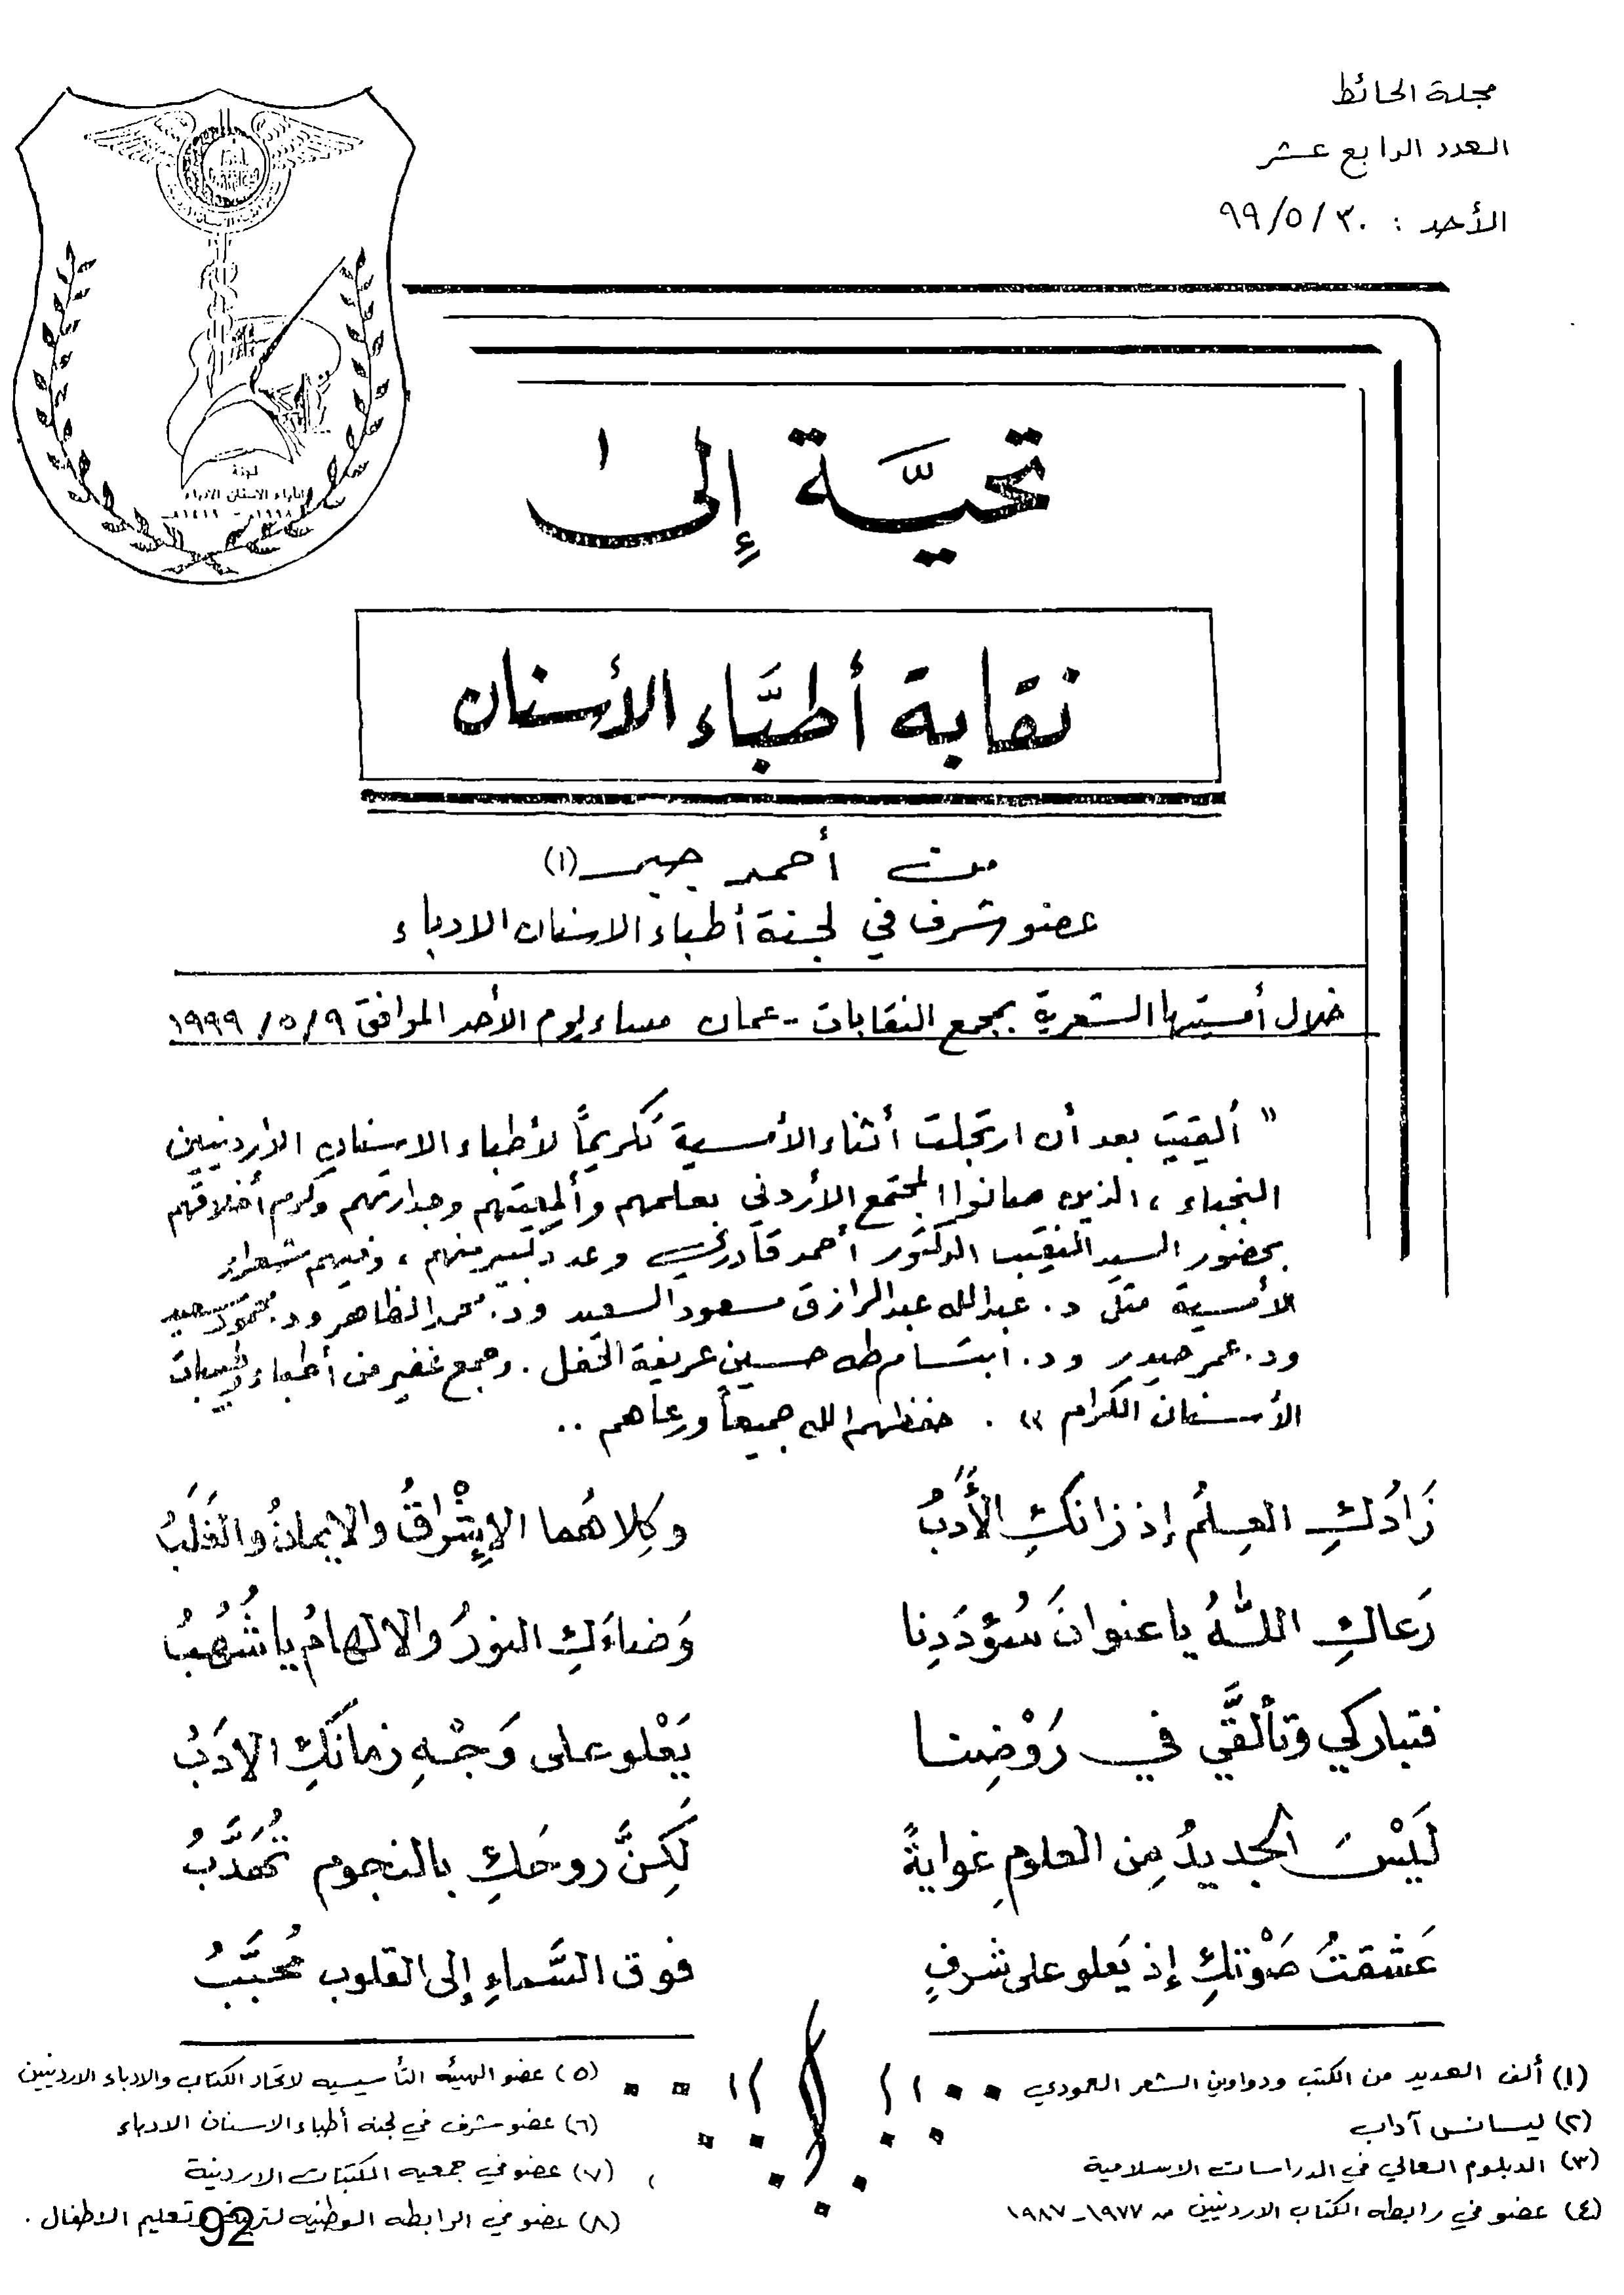 مجلة الحائط
العدد الرابع عشر
الأحد : ٩٩/٥/٣٠
لجنة
أطباء الاسنان الادباء
١٩٩٨م - ١٤١٩هـ
تحيَّة إلىٰ
نقابة أطبَّاء الأسنان
من أحمد جبر (١)
عضو شرف في لجنة أطباء الاسنان الادباء
خلال أمسيتها الشعرية بمجمع النقابات - عمان مساء يوم الأحد الموافق ١٩٩٩/٥/٩
" ألقيت بعد أن ارتجلت أثناء الأمسية تكريمًا لأطباء الاسنان الأردنيين
النجباء ، الذين صانوا المجتمع الأردني بعلمهم وألمعيتهم وجدارتهم وكرم أخلاقهم
بحضور السيد النقيب الدكتور أحمد قادري وعدد كبير منهم ، وفيهم شعراء
الأمسية مثل د. عبدالله عبدالرازق مسعود السعيد ود. محمد الظاهر ود. محمود سعيد
ود. عمر حيدر ود. ابتسام طه حسين عريفة الحفل . وجمع غفير من أطباء وطبيبات
الأسنان الكرام " . حفظهم الله جميعاً ورعاهم ..
زَادَكِ العِلمُ إذ زانكِ الأَدَبُ وكِلاهُما الإِشْراقُ والايمانُ والغَلَبُ
رَعاكِ اللّٰهُ يا عنوانَ سُؤدَدِنا وَضاءَكِ النورُ والالهامُ يا شُهُبُ
فتباركي وتألقَّي في رَوْضِنا يَعْلو على وَجْهِ زمانَكِ الادَبُ
لَيْسَ الجديدُ مِن العلومِ غوايةً لَكِنَّ روحَكِ بالنجوم تُهَدَّبُ
عَشقتُ صَوْتكِ إذ يَعلو على شرفٍ فوق السَّماءِ إلى القلوب مُحبَّبُ
(١) ألف العديد من الكتب ودواوين الشعر العمودي
(٢) ليسانس آداب
(٣) الدبلوم العالي في الدراسات الاسلامية
(٤) عضو في رابطة الكتاب الاردنيين من ١٩٧٧-١٩٨٧
(٥) عضو الهيئه التأسيسيه لاتحاد الكتاب والادباء الاردنيين
(٦) عضو شرف في لجنه أطباء الاسنان الادباء
(٧) عضو في جمعيه المكتبات الاردنية
(٨) عضو في الرابطه الوطنيه لتربية وتعليم الاطفال .
92